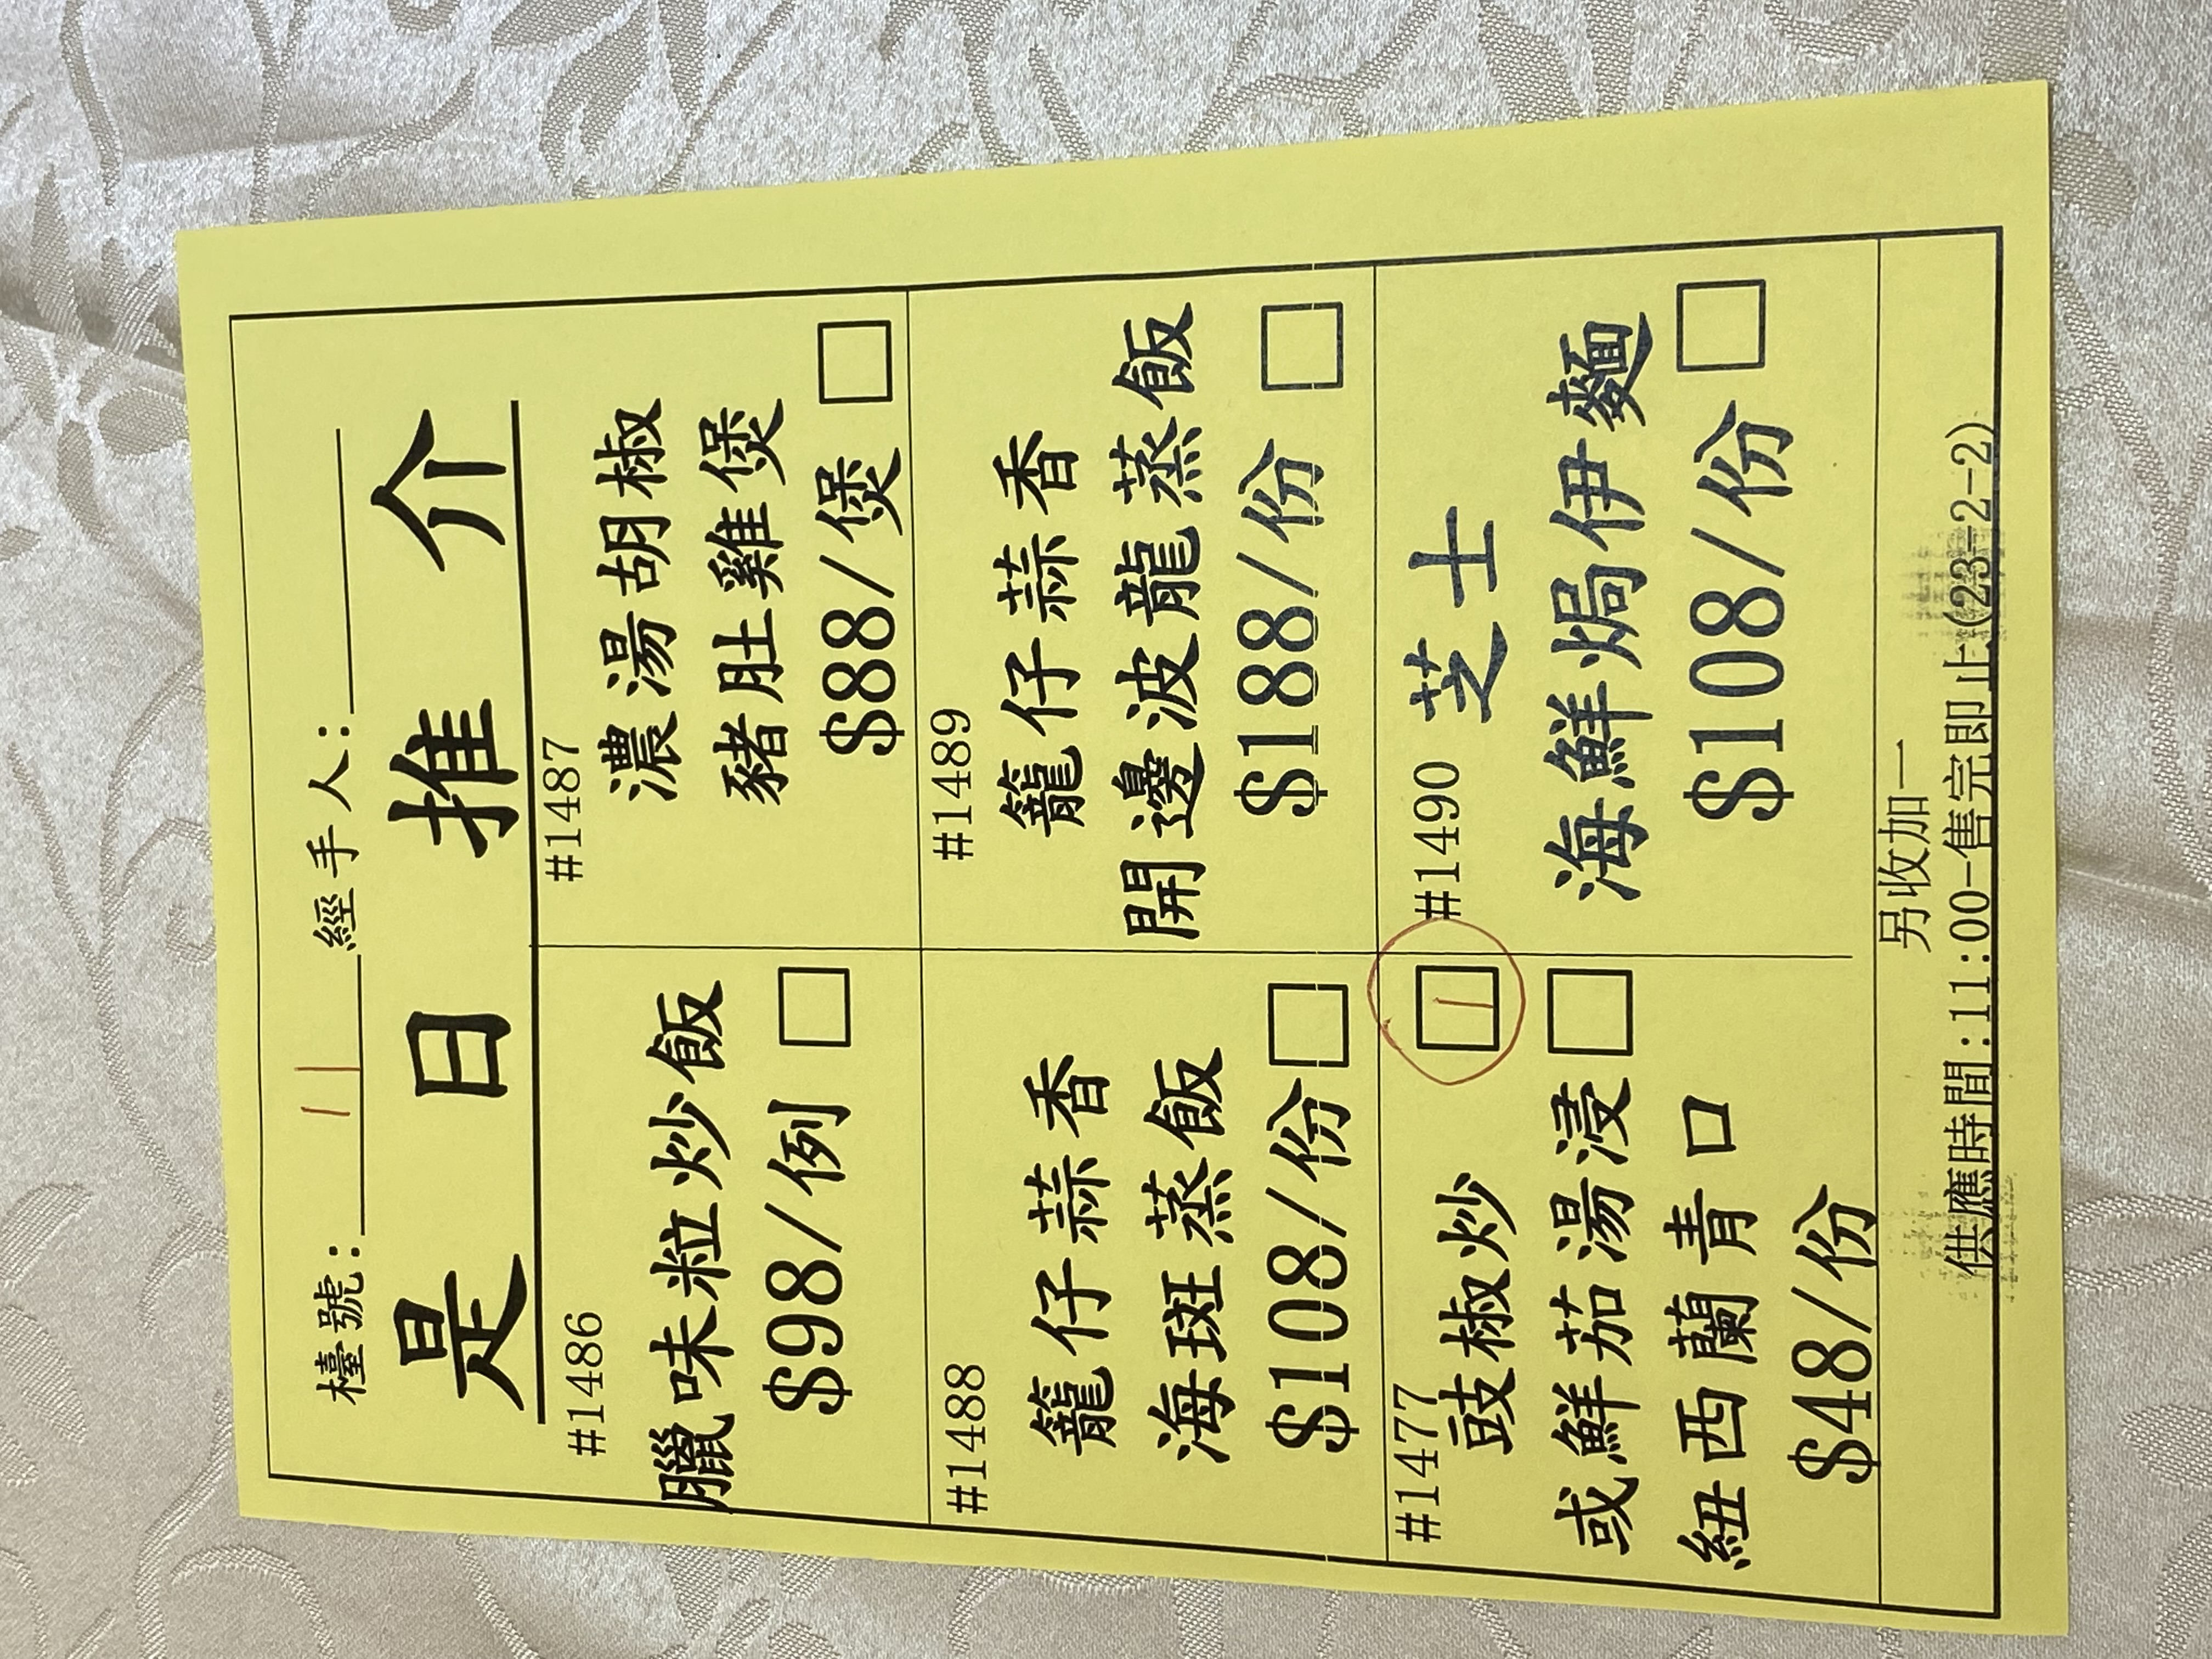 檯號：11 經手人：
是日推介
#1486
臘味粒炒飯
$98/例
#1487
濃湯胡椒
豬肚雞煲
$88/煲
#1488
籠仔蒜香
海斑蒸飯
$108/份
#1489
籠仔蒜香
開邊波龍蒸飯
$188/份
#1477
豉椒炒 1
或鮮茄湯浸
紐西蘭青口
$48/份
#1490 芝士
海鮮焗伊麵
$108/份
另收加一
供應時間：11:00-售完即止(23-2-2)